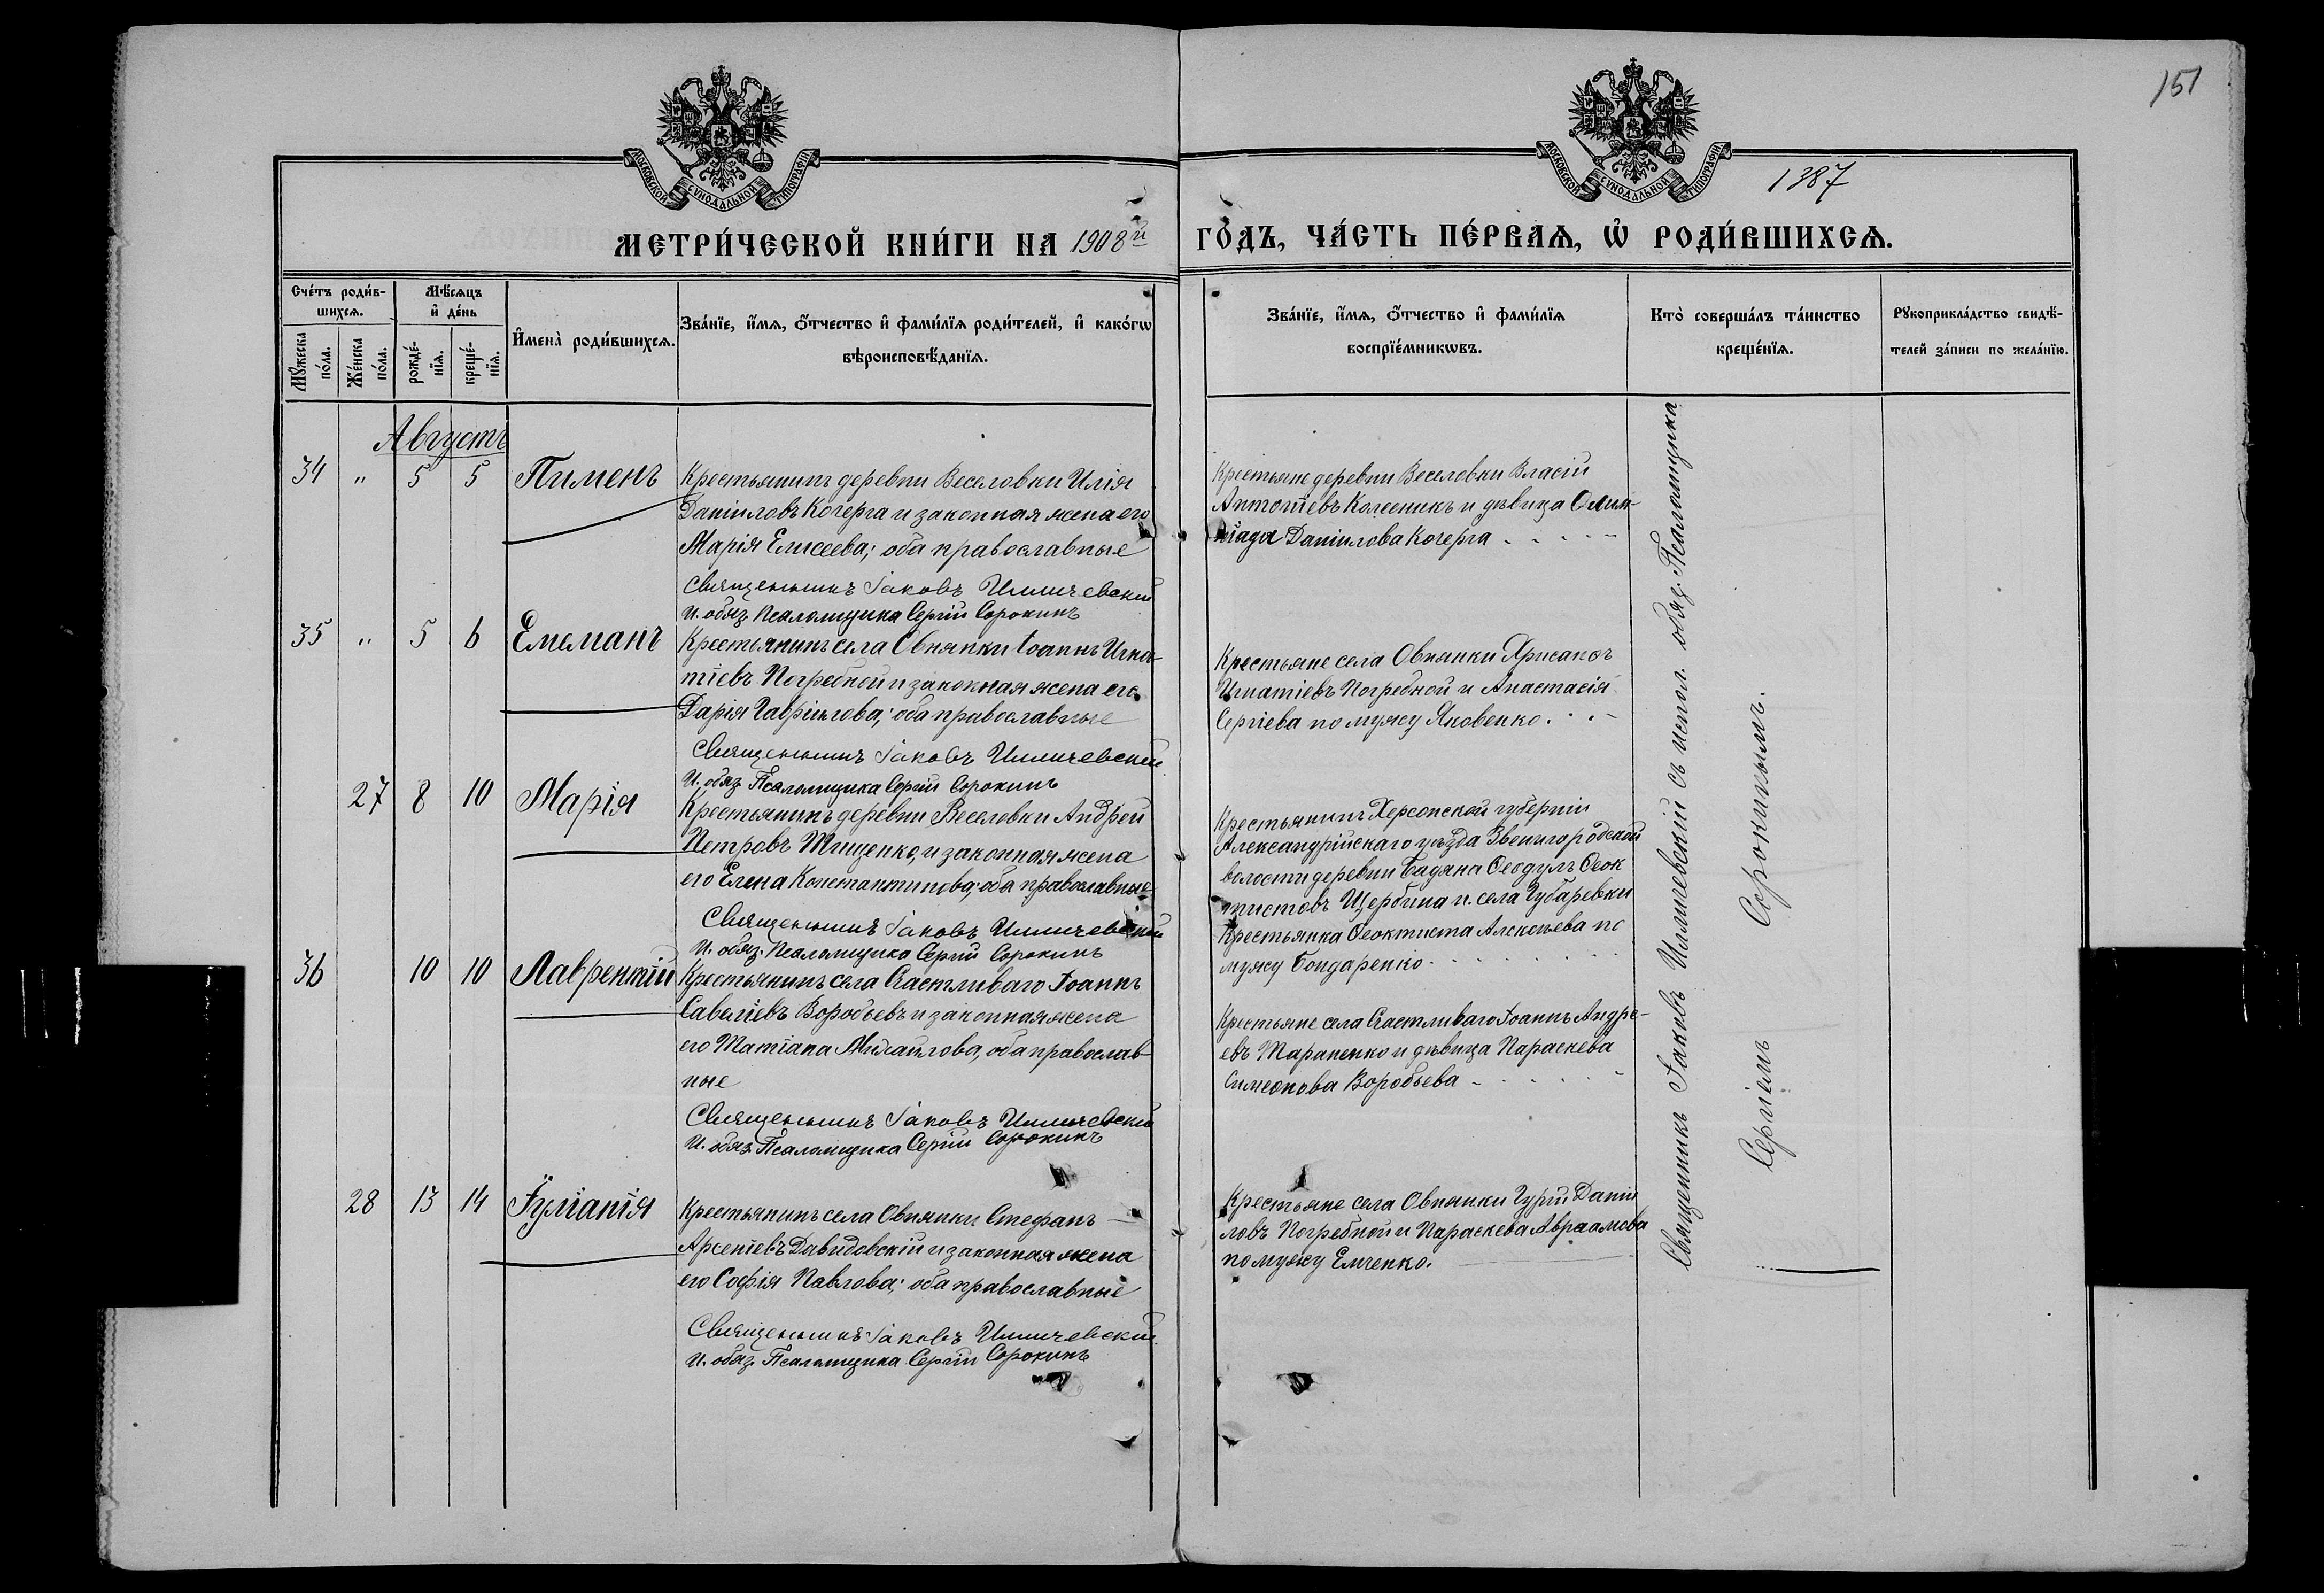 151
1387
МОСКОВСКОЙ СѴНОДАЛЬНОЙ ТИПОГРАФІИ
МОСКОВСКОЙ СѴНОДАЛЬНОЙ ТИПОГРАФІИ
МЕТРИ́ЧЕСКОЙ КНИ́ГИ НА 1908й
ГО́ДЪ, ЧА́СТЬ ПЕ́РВАѦ, Ѡ҆ РОДИ́ВШИХСѦ.
Сче́тъ роди́в-
шихсѧ.
Мꙋ́жеска по́ла.
Же́нска по́ла.
Мѣ́сѧцъ
и҆ де́нь
рожде́-
нїѧ.
креще́-
нїѧ.
И҆мена̀ роди́вшихсѧ.
Зва́нїе, и҆́мѧ, ѻ҆́тчество и҆ фами́лїѧ роди́телей, и҆ како́гѡ
вѣроисповѣ́данїѧ.
Зва́нїе, и҆́мѧ, ѻ҆́тчество и҆ фами́лїѧ
воспрїе́мникѡвъ.
Кто̀ соверша́лъ та́инство
креще́нїѧ.
Рꙋкоприкла́дство свидѣ́-
телей за́писи по жела́нїю.
Августъ
34 " 5 5 Пименъ
Крестьянинъ деревни Веселовки Илія
Даніиловъ Кочерга и законная жена его
Марія Елисеева; оба православные
Священникъ Іаковъ Илличевскій
И. обяз. Псаломщика Сергій Сорокинъ
Крестьяне деревни Веселовки Власій
Антоніевъ Колесникъ и дѣвица Олим-
піада Даніилова Кочерга
35 " 5 6 Емеліанъ
Крестьянинъ села Овнянки Іоаннъ Игна-
тіевъ Погребной и законная жена его
Дарія Гавріилова; оба православные
Священникъ Іаковъ Илличевскій
И. обяз. Псаломщика Сергій Сорокинъ
Крестьяне села Овнянки Хрисанѳъ
Игнатіевъ Погребной и Анастасія
Сергіева по мужу Яковенко.
27 8 10 Марія
Крестьянинъ деревни Веселовки Андрей
Петровъ Тищенко, и законная жена
его Елена Константинова; оба православные
Священникъ Іаковъ Илличевскій
И. обяз. Псаломщика Сергій Сорокинъ
Крестьянинъ Херсонской губерніи
Александрійскаго уѣзда Звенигородской
волости деревни Бадяна Ѳеодулъ Ѳеок
тистовъ Щербина и села Губаревки
Крестьянка Ѳеоктиста Алексѣева по
мужу Бондаренко
36 10 10 Лаврентій
Крестьянинъ села Счастливаго Іоаннъ
Савеліевъ Воробьевъ и законная жена
его Татіана Михаилова, оба православ-
ные
Священникъ Іаковъ Илличевскій
И. обяз. Псаломщика Сергій Сорокинъ
Крестьяне села Счастливаго Іоаннъ Андре-
евъ Тараненко и дѣвица Параскева
Симеонова Воробьева
28 13 14 Іуліанія
Крестьянинъ села Овнянки Стефанъ
Арсеніевъ Давидовскій и законная жена
его Софія Павлова; оба православные
Священникъ Іаковъ Илличевскій
И. обяз. Псаломщика Сергій Сорокинъ
Крестьяне села Овнянки Гурій Даніи
ловъ Погребной и Параскева Авраамова
по мужу Емченко.
Священникъ Іаковъ Илличевскій съ испол. обяз. Псаломщика
Сергіемъ Сорокинымъ.